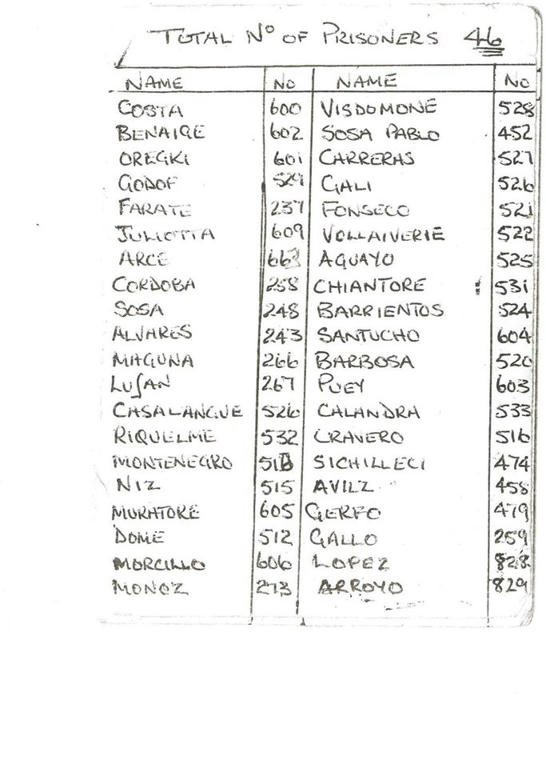 TOTAL Nº OF PRISONERS 46
NAME No NAME No
COSTA 600 VISDOMONE 528
BENAIGE 602 SOSA PABLO 452
OREGKI 601 CARRERAS 527
GODOF 529 GALI 526
FARATE 237 FONSECO 521
JULIOTTA 609 VOLLAIVERIE 522
ARCE 663 AGUAYO 525
CORDOBA 258 CHIANTORE 531
SOSA 248 BARRIENTOS 524
ALVARES 243 SANTUCHO 604
MAGUNA 266 BARBOSA 520
LUJAN 267 PUEY 603
CASALANGUE 526 CALANDRA 533
RIQUELME 532 CRAVERO 516
MONTENEGRO SICHILLECI 474
NIZ 515 AVILZ 458
MURATORE 605 GERFO 479
DOME 512 GALLO 259
MORCILLO 606 LOPEZ 828
MONOZ 273 ARROYO 829